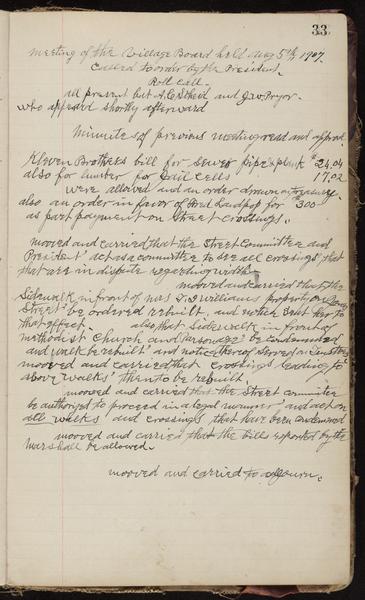 33
meeting of the Village Board held Aug 5th, 1907.
Called to order by the President.
Roll Call.
all present but A.C. Scheid and J.W. Pryor.
who appeard shortly afterward
Minnutes of previous meeting read and approved.
Kleven Brothers bill for sewer pipe & plank $24.04
also for lumber for Jail Cells 17.02
were allowed and an order drawn on treasury.
also an order in favor of for $300
as part payment on Street crossings.
mooved and carried that the Street Committee and
President act as a committee to see all crossings that
that are in dispute regarding width
mooved and carried that the
Sidewalk in front of Mrs Williams property on
Street be ordered rebuilt, and notice sent her to
that effect. also that Sidewalk in front of
methodist Church and Parsonage be Condemned
and walk be rebuilt and notice thereof served on Trustees
mooved and carried that crossings leading to
above walks then to be rebuilt.
mooved and carried that the Street committee
be authorized to proceed in a legal manner, and act on
all walks, and crossings that have been condemned
mooved and carried that the bills reported by the
marshall be allowed.
mooved and carried to adjourn.